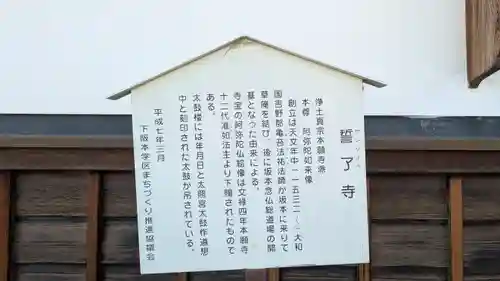 誓了寺
浄土真宗本願寺派
本尊 阿弥陀如来像
創立は天文年中一五三二〜大和
国吉野郡亀吾法祐法師が坂本に来りて
草庵を結び 後に坂本念仏総道場の開
基となった由来による。
寺宝の阿弥陀仏絵像は文禄四年本願寺
十二代准如法主より下賜されたもので
ある。
太鼓楼には年月日と太照宮太鼓作道想
中と刻印された太鼓が吊されている。
平成七年三月
下阪本学区まちづくり推進協議会